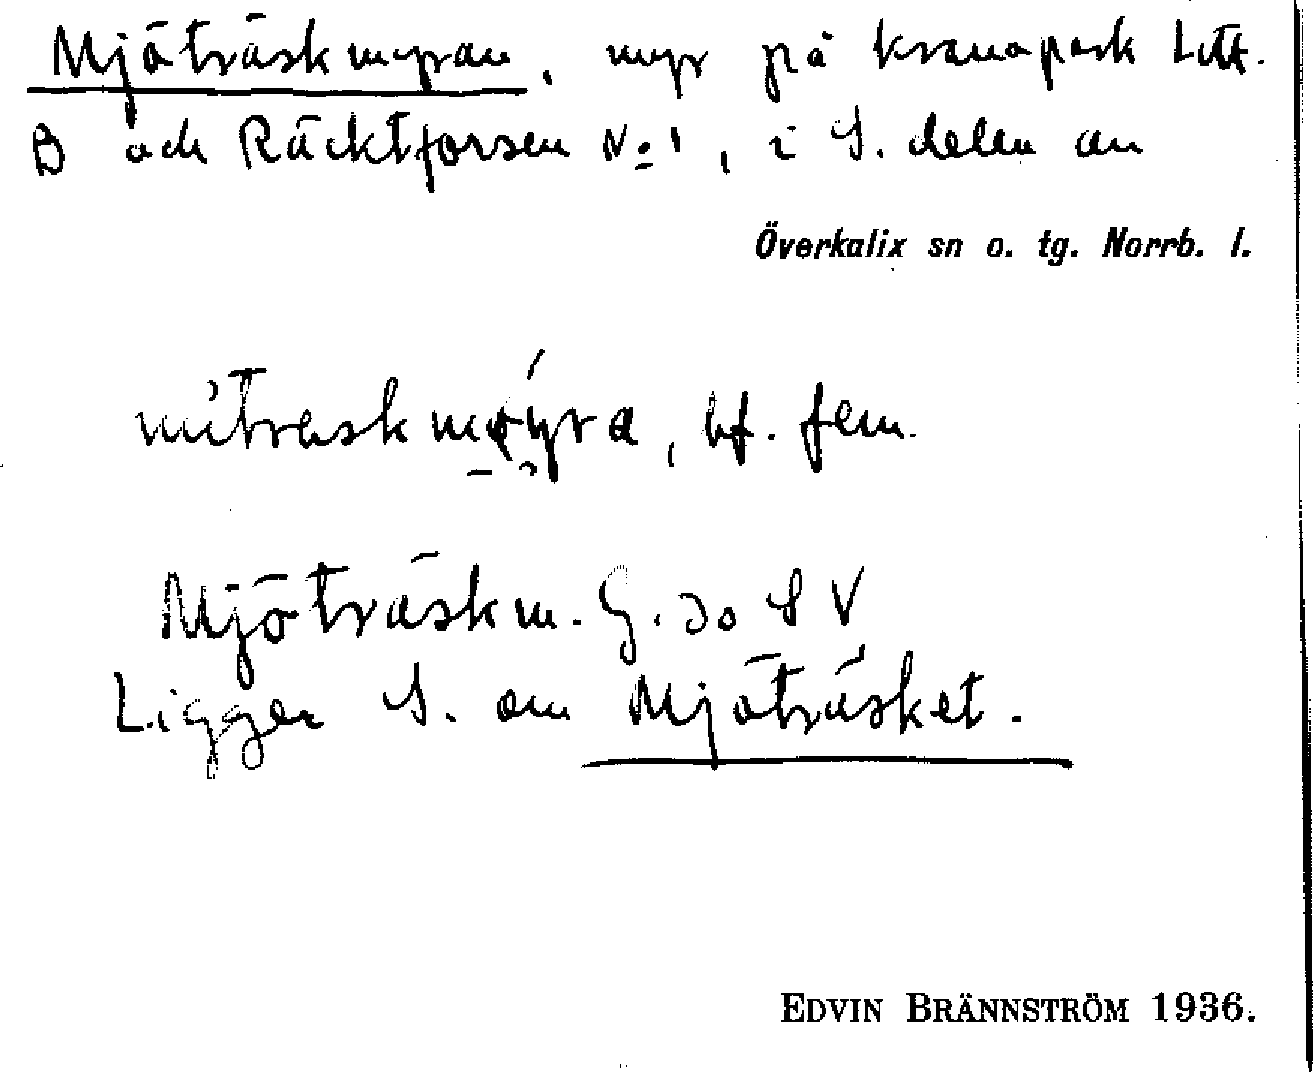 Mjöträskmyran, myr på kronopark Litt.
B och Räcktforsen No 1, i S. delen av
Överkalix sn o. tg. Norrb. l.
bf. fem.
Mjöträskm. G. 30 S V
Ligger S. om Mjöträsket.
EDVIN BRÄNNSTRÖM 1936.